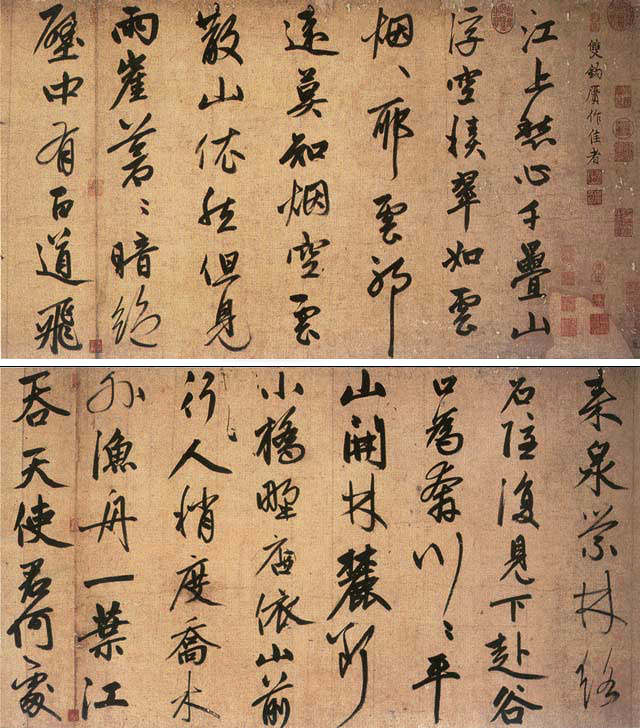 雙鈎贋作佳者
江上愁心千疊山
浮空積翠如雲
烟〻耶雲耶
遠莫知烟空雲
散山依然但見
兩崖蒼〻暗絕
壁中有百道飛
来泉縈林絡
石隱復見下赴谷
口為奔川〻平
山開林麓斷
小橋野店依山前
行人稍度喬木
外漁舟一葉江
吞天使君何處